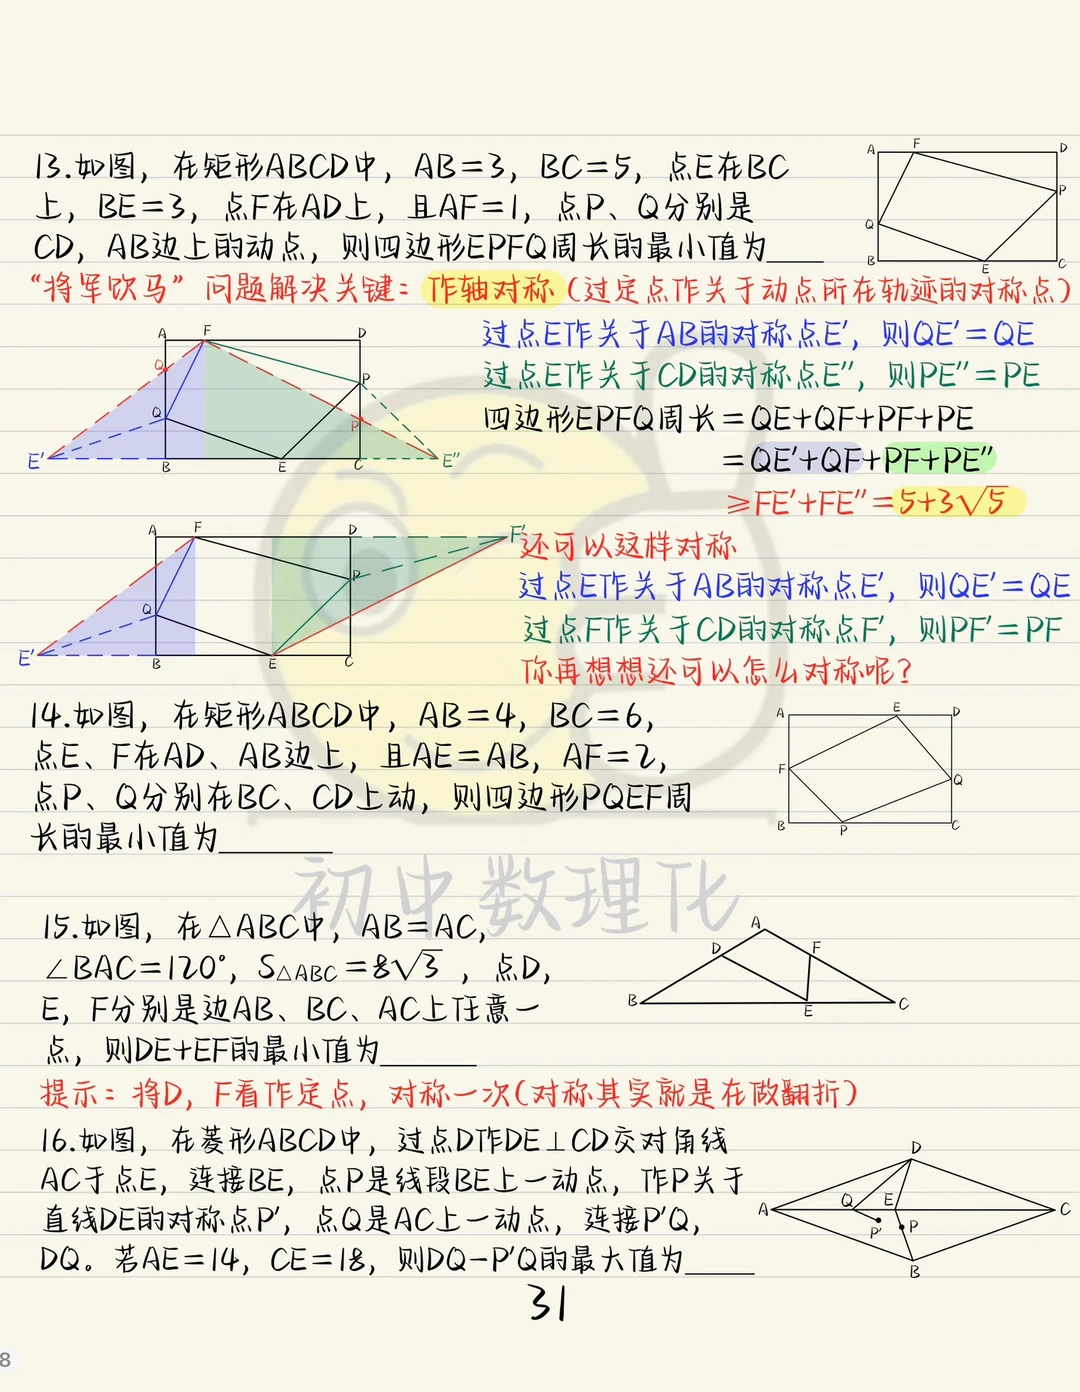 13.如图，在矩形ABCD中，AB=3，BC=5，点E在BC
上，BE=3，点F在AD上，且AF=1，点P、Q分别是
CD，AB边上的动点，则四边形EPFQ周长的最小值为____
A F D
Q P
B E C
“将军饮马”问题解决关键：作轴对称（过定点作关于动点所在轨迹的对称点）
A F D
Q P
Q P
E' B E C E''
过点E作关于AB的对称点E'，则QE'=QE
过点E作关于CD的对称点E''，则PE''=PE
四边形EPFQ周长=QE+QF+PF+PE
=QE'+QF+PF+PE''
≥FE'+FE''=5+3√5
A F D F'
Q P
E' B E C
还可以这样对称
过点E作关于AB的对称点E'，则QE'=QE
过点F作关于CD的对称点F'，则PF'=PF
你再想想还可以怎么对称呢？
14.如图，在矩形ABCD中，AB=4，BC=6，
点E、F在AD、AB边上，且AE=AB，AF=2，
点P、Q分别在BC、CD上动，则四边形PQEF周
长的最小值为________
A E D
F Q
B P C
初中数理化
15.如图，在△ABC中，AB=AC，
∠BAC=120°，S△ABC=8√3，点D，
E，F分别是边AB、BC、AC上任意一
点，则DE+EF的最小值为_______
A
D F
B E C
提示：将D，F看作定点，对称一次（对称其实就是在做翻折）
16.如图，在菱形ABCD中，过点D作DE⊥CD交对角线
AC于点E，连接BE，点P是线段BE上一动点，作P关于
直线DE的对称点P'，点Q是AC上一动点，连接P'Q，
DQ。若AE=14，CE=18，则DQ-P'Q的最大值为_____
D
A Q E C
P' P
B
31
8